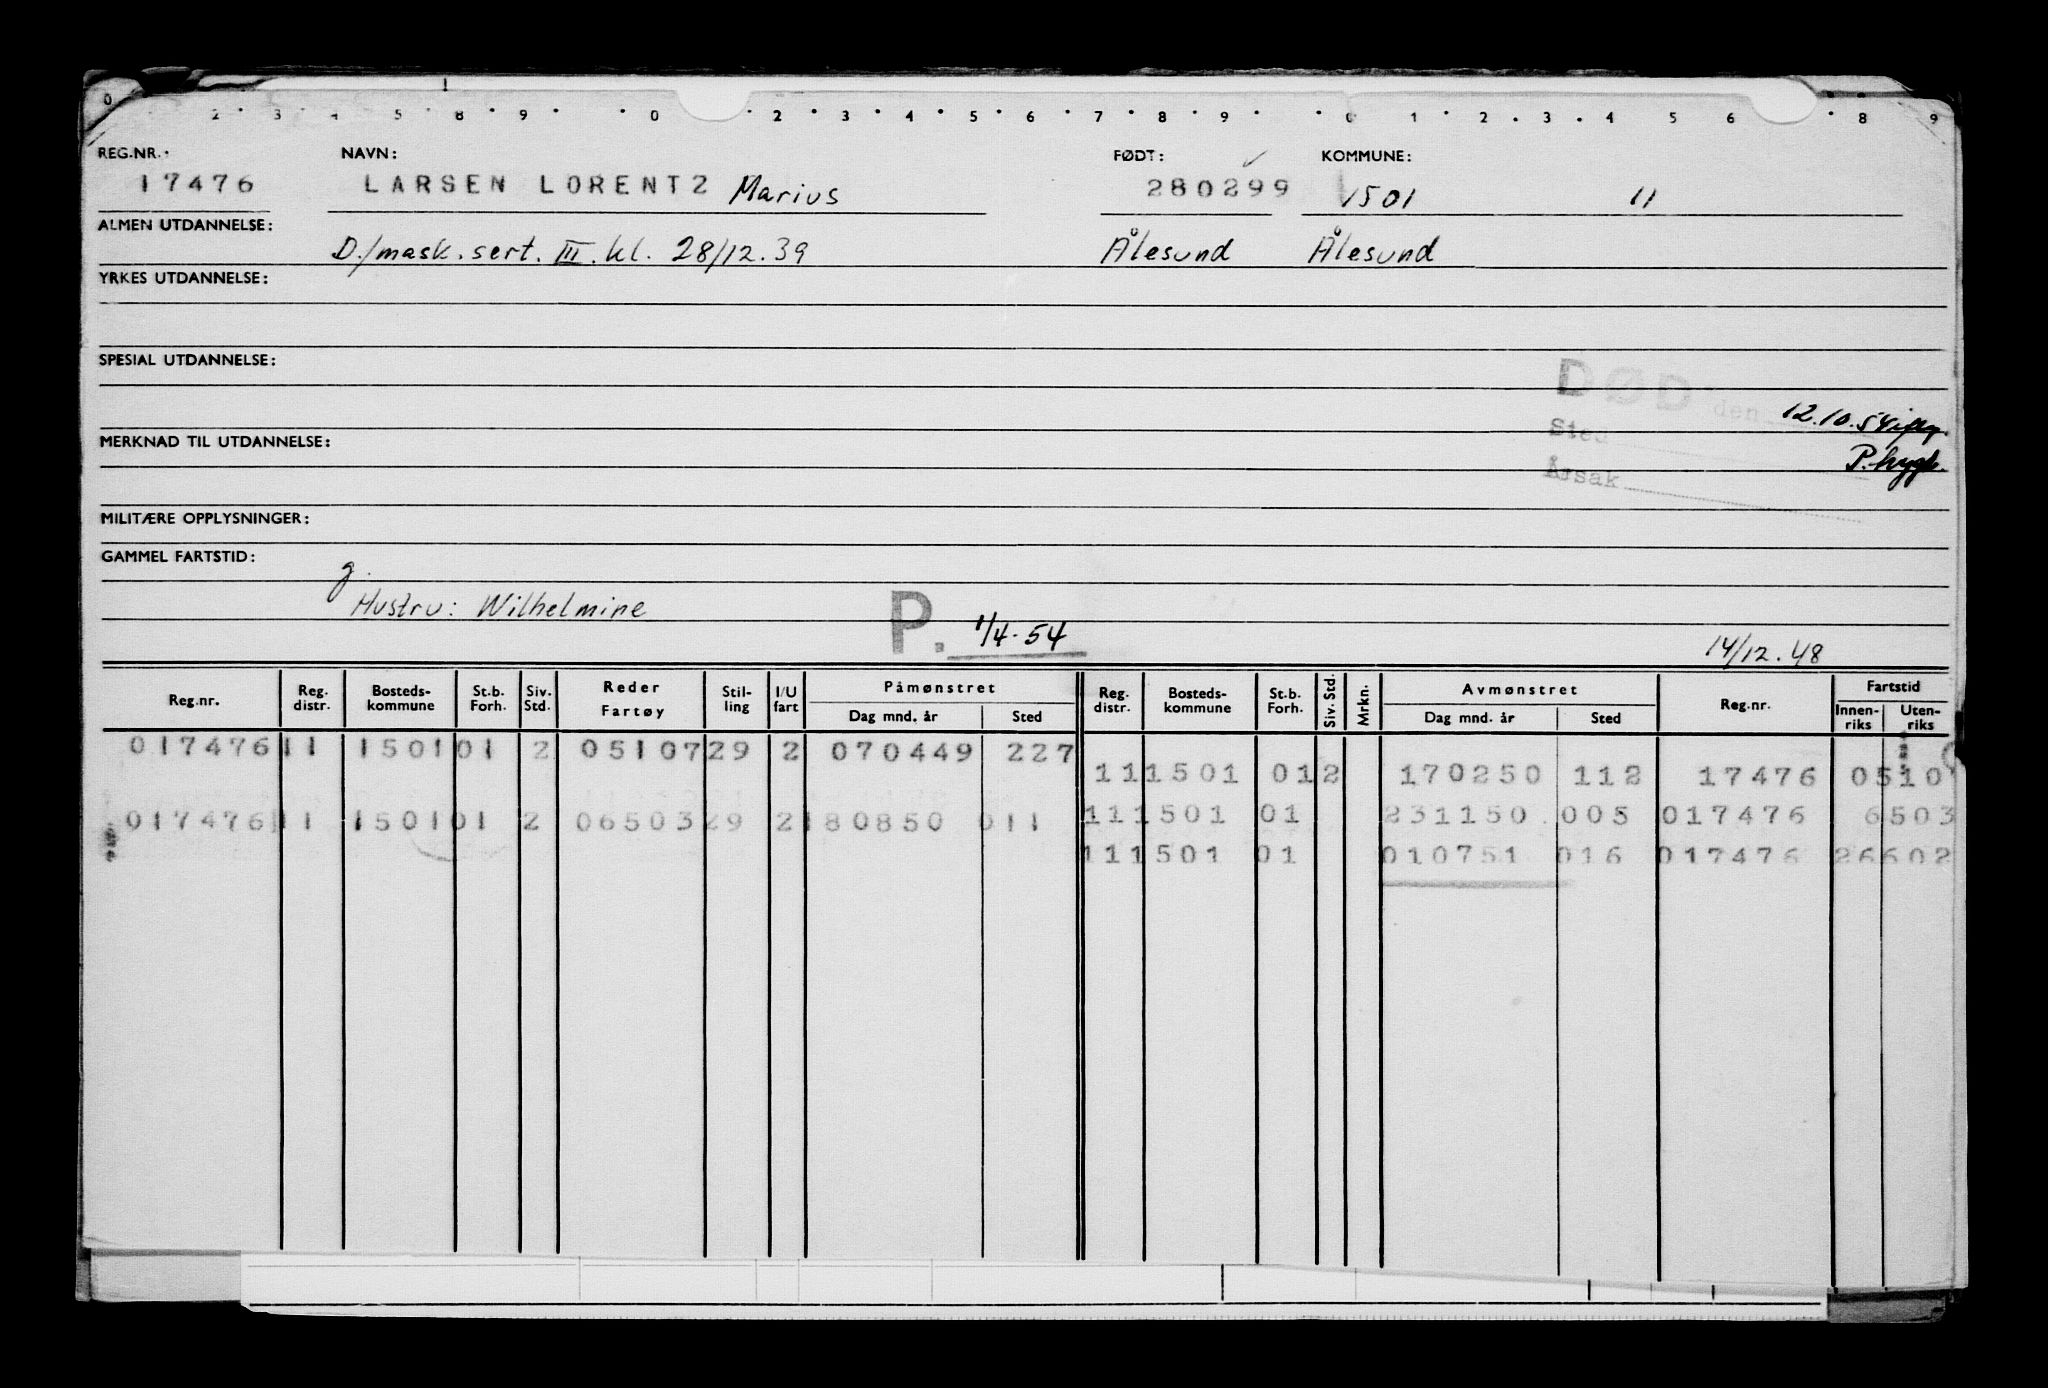 REG.NR. NAVN: FØDT: KOMMUNE:
17476 LARSEN LORENTZ Marius 280299 1501 11
ALMEN UTDANNELSE:
D./mask. sert. III. kl. 28/12.39 Ålesund Ålesund
YRKES UTDANNELSE:
SPESIAL UTDANNELSE:
DØD den 12.10.54
MERKNAD TIL UTDANNELSE: Sted
Årsak
MILITÆRE OPPLYSNINGER:
GAMMEL FARTSTID:
g.
Hustru: Wilhelmine
P. 1/4-54 14/12.48
Reg.nr. Reg. distr. Bosteds-kommune St.b. Forh. Siv. Std. Reder Fartøy Stil-ling I/U fart Påmønstret Dag mnd. år Sted Reg. distr. Bosteds-kommune St.b. Forh. Siv. Std. Mrkn. Avmønstret Dag mnd. år Sted Reg.nr. Fartstid Innen-riks Uten-riks
017476 11 1501 01 2 05107 29 2 070449 227
11 1501 01 2 170250 112 17476 0510
017476 11 1501 01 2 06503 29 2 180850 011
11 1501 01 231150 005 017476 6503
11 1501 01 010751 016 017476 26602